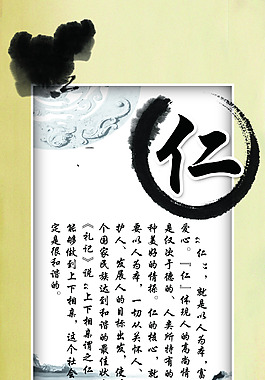 仁
“仁”,就是以人为本,富
爱心。『仁』体现人的高尚情
是仅次于德的、人类所特有的
种美好的情操。仁的核心,就
要以人为本,一切从关怀人、
护人、发展人的目标出发,使
个国家民族达到和谐的最佳状
《礼记》说“上下相亲谓之仁
能够做到上下相亲,这个社会
定是很和谐的。